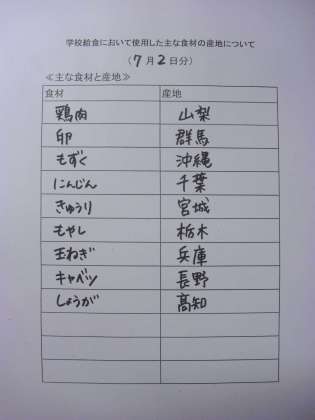 学校給食において使用した主な食材の産地について
(7月2日分)
≪主な食材と産地≫
食材 産地
鶏肉 山梨
卵 群馬
もずく 沖縄
にんじん 千葉
きゅうり 宮城
もやし 栃木
玉ねぎ 兵庫
キャベツ 長野
しょうが 高知